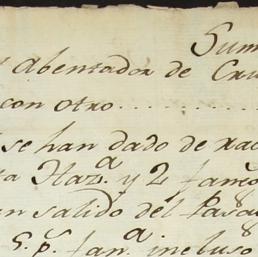 Sum
Abentador de Cru
con otro ..........
se han dado de rac
ta Haz.a y 2 fan
an salido del Pasa
S.p. fan.a incluso